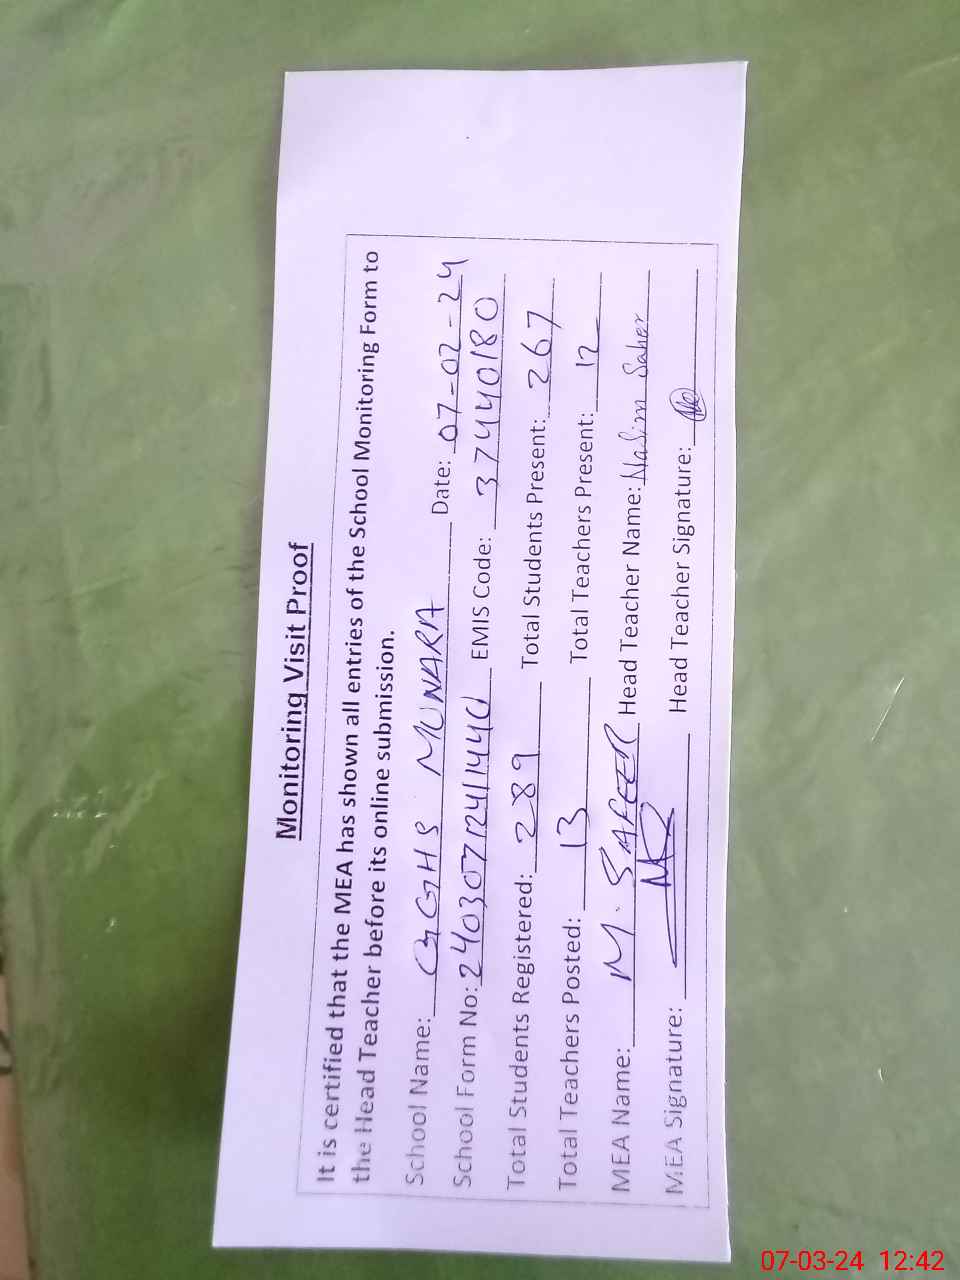 Monitoring Visit Proof
It is certified that the MEA has shown all entries of the School Monitoring Form to
the Head Teacher before its online submission.
School Name: GGHS MUNARA Date: 07-02-24
School Form No: 240307124114440 EMIS Code: 37440180
Total Students Registered: 289 Total Students Present: 267
Total Teachers Posted: 13 Total Teachers Present: 12
MEA Name: M. SAFEER Head Teacher Name: Nasim Saher
MEA Signature: Head Teacher Signature:
07-03-24 12:42